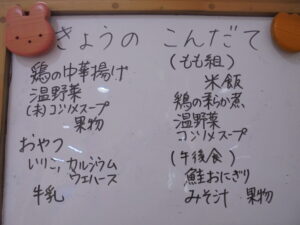 きょうの こんだて
鶏の中華揚げ
温野菜
(末)コンソメスープ
果物
おやつ
いりこ,カルシウム
ウエハース
牛乳
(もも組)
米飯
鶏の柔らか煮
温野菜
コンソメスープ
(午後食)
鮭おにぎり
みそ汁 果物